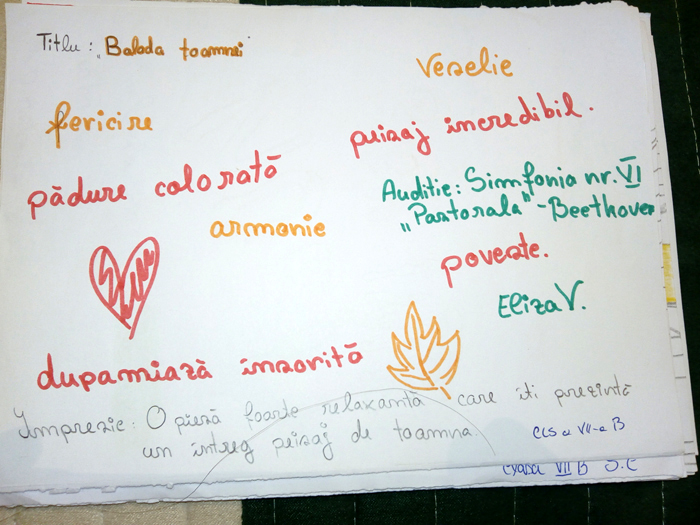 Titlu: „Balada toamnei"
Veselie
fericire
peisaj incredibil.
pădure colorată
Auditie: Simfonia nr. VI
„Pastorala" - Beethoven
armonie
poveste.
Eliza V.
dupamiază însorită
Imprezie: O piesă foarte relaxantă care iti prezintă
un întreg peisaj de toamna.
CLS a VII-a B
VII B S.C